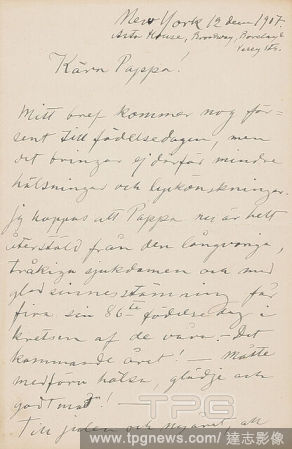 New York 12 dem 1907.
Astor House, Broadway, Barclay &
Vesey Sts.
Kära Pappa!
Mitt bref kommer nog för-
sent till födelsedagen, men
det bringar ej därför mindre
hälsningar och lyckönskningar.
Jag hoppas att Pappa nu är helt
återstäld från den långvariga,
tråkiga sjukdomen och med
glad sinnesstämning får
fira sin 86te födelsedag i
kretsen af de våra. - Det
kommande året! - Måtte
medföra hälsa, glädje och
godt mod! -
Till julen och nyåret all
TPG
www.tpgnews.com / 達志影像